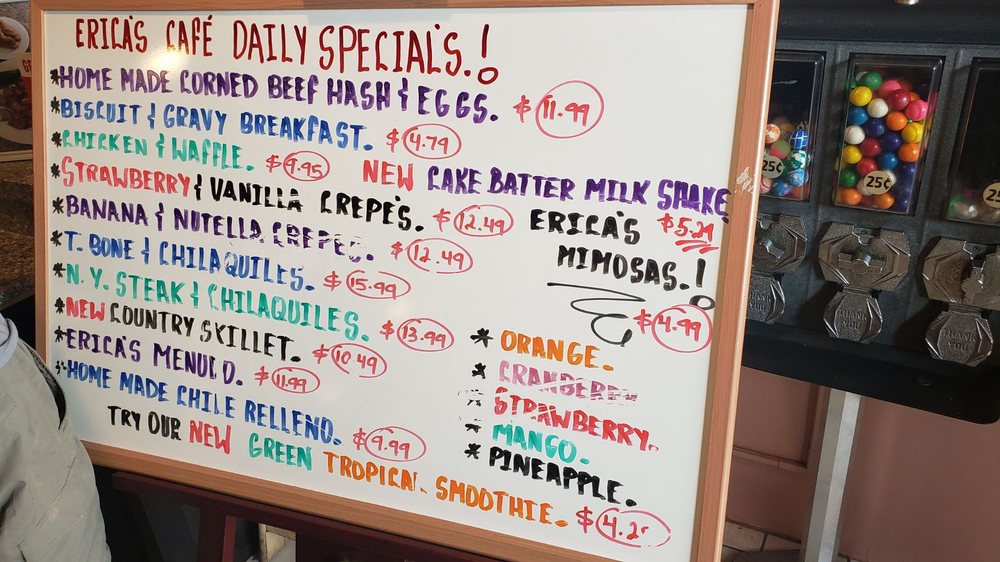 ERICA'S CAFÉ DAILY SPECIAL'S.!
*HOME MADE CORNED BEEF HASH & EGGS. $11.99
*BISCUIT & GRAVY BREAKFAST. $4.79
*CHICKEN & WAFFLE. $9.95
*STRAWBERRY & VANILLA CREPE'S. $12.49
*BANANA & NUTELLA CREPES. $12.49
*T. BONE & CHILAQUILES. $15.99
*N.Y. STEAK & CHILAQUILES. $13.99
*NEW COUNTRY SKILLET. $10.49
*ERICA'S MENUDO. $11.99
*HOME MADE CHILE RELLENO. $9.99
TRY OUR NEW GREEN TROPICAL SMOOTHIE. $4.2
NEW CAKE BATTER MILK SHAKE
$5.29
ERICA'S
MIMOSAS.!
$4.99
* ORANGE.
* CRANBERRY
* STRAWBERRY.
* MANGO.
* PINEAPPLE.
25¢
25¢
THANK YOU
THANK YOU